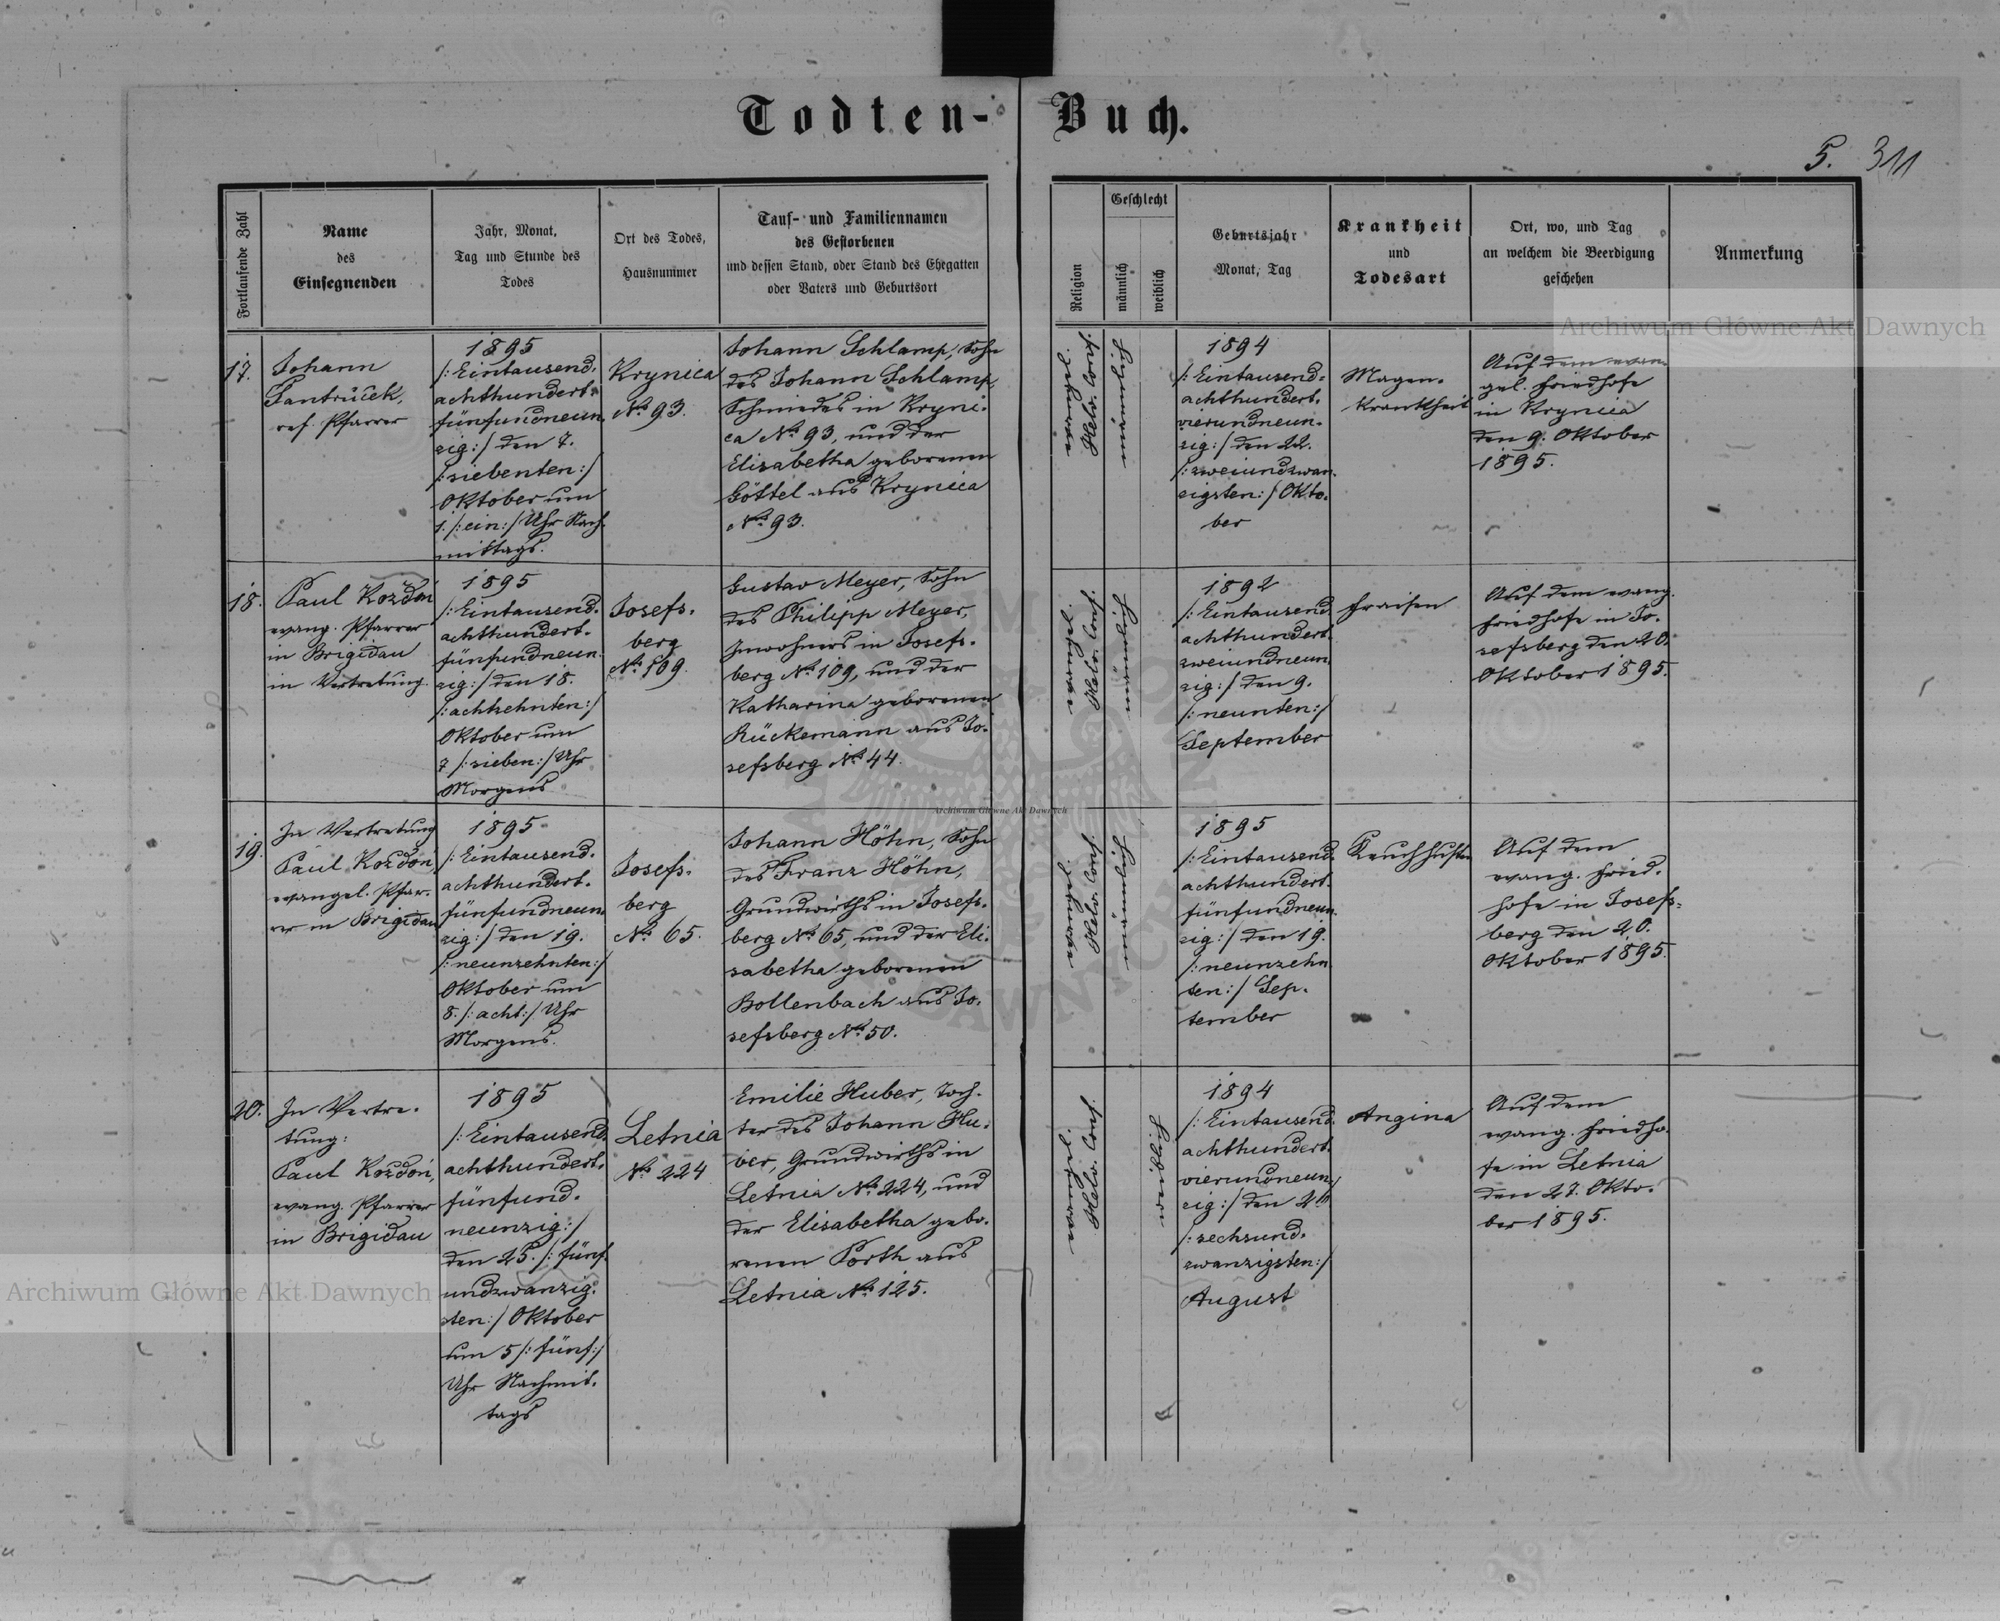 Todten-Buch.
5. 311
Fortlaufende Zahl
Name
des
Einsegnenden
Jahr, Monat,
Tag und Stunde des
Todes
Ort des Todes,
Hausnummer
Tauf- und Familiennamen
des Gestorbenen
und dessen Stand, oder Stand des Ehegatten
oder Vaters und Geburtsort
Religion
Geschlecht
männlich
weiblich
Geburtsjahr
Monat, Tag
Krankheit
und
Todesart
Ort, wo, und Tag
an welchem die Beerdigung
geschehen
Anmerkung
17.
Johann
ref. Pfarrer
1895
/: Eintausend-
achthundert-
fünfundneun-
zig :/ den 7.
/: siebenten :/
Oktober um
1. /: ein :/ Uhr Nach-
mittags.
Krynica
No 93.
Johann Schlamp, Sohn
des Johann Schlamp,
Schmiedes in Kryni-
ca No 93, und der
Elisabetha geborenen
Göttel aus Krynica
No 93.
evangel.
Helv. Conf.
männlich
1894
/: Eintausend-
achthundert-
vierundneun-
zig :/ den 22.
/: zweiundzwan-
zigsten :/ Okto-
ber
Magen-
krankheit
Auf dem evan-
gel. Friedhofe
in Krynica
den 9. Oktober
1895.
18.
Paul Kozdoń
evang. Pfarrer
in Brigidau
in Vertretung.
1895
/: Eintausend-
achthundert-
fünfundneun-
zig :/ den 18.
/: achtzehnten :/
Oktober um
7 /: sieben :/ Uhr
Morgens
Josefs-
berg
No 109.
Gustav Meyer, Sohn
des Philipp Meyer,
Inwohners in Josefs-
berg No 109, und der
Katharina geborenen
Rückemann aus Jo-
sefsberg No 44.
evangel.
Helv. Conf.
männlich
1892
/: Eintausend-
achthundert-
zweiundneun-
zig :/ den 9.
/: neunten :/
September
Fraisen
Auf dem evang.
Friedhofe in Jo-
sefsberg den 20.
Oktober 1895.
19.
In Vertretung
Paul Kozdoń,
evangel. Pfar-
rer in Brigidau
1895
/: Eintausend-
achthundert-
fünfundneun-
zig :/ den 19.
/: neunzehnten :/
Oktober um
8. /: acht :/ Uhr
Morgens.
Josefs-
berg
No 65.
Johann Höhn, Sohn
des Franz Höhn,
Grundwirths in Josefs-
berg No 65, und der Eli-
sabetha geborenen
Bollenbach aus Jo-
sefsberg No 50.
evangel.
Helv. Conf.
männlich
1895
/: Eintausend-
achthundert-
fünfundneun-
zig :/ den 19.
/: neunzehn-
ten :/ Sep-
tember
Keuchhusten
Auf dem
evang. Fried-
hofe in Josefs-
berg den 20.
Oktober 1895.
20.
In Vertre-
tung:
Paul Kozdoń,
evang. Pfarrer
in Brigidau
1895
/: Eintausend-
achthundert-
fünfund-
neunzig :/
den 25. /: fünf-
undzwanzig-
sten :/ Oktober
um 5 /: fünf :/
Uhr Nachmit-
tags
Letnia
No 224
Emilie Huber, Toch-
ter des Johann Hu-
ber, Grundwirths in
Letnia No 224, und
der Elisabetha gebo-
renen Porth aus
Letnia No 125.
evangel.
Helv. Conf.
weiblich
1894
/: Eintausend-
achthundert-
vierundneun-
zig :/ den 26
/: sechsund-
zwanzigsten :/
August
Angina
Auf dem
evang. Friedho-
fe in Letnia
den 27. Okto-
ber 1895.
Archiwum Główne Akt Dawnych
Archiwum Główne Akt Dawnych
Archiwum Główne Akt Dawnych